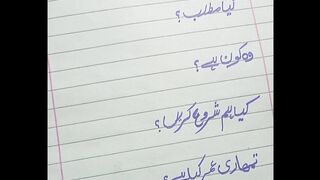 کیا مطلب؟
وہ کون ہے؟
کیا ہم شروع کریں؟
تمہاری عمر کیا ہے؟